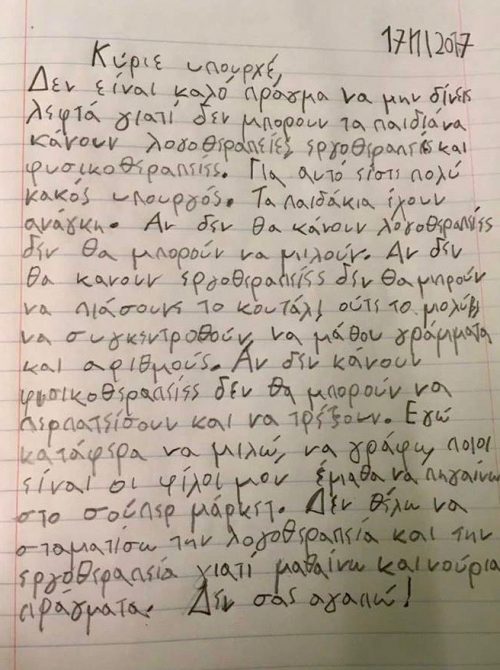 17/1/2017
Κύριε υπουργέ,
Δεν είναι καλό πράγμα να μην δίνεις
λεφτά γιατί δεν μπορουν τα παιδιά να
κάνουν λογοθεραπείες, εργοθεραπείες και
φυσικοθεραπείες. Για αυτό είστι πολύ
κακός υπουργός. Τα παιδάκια έχουν
ανάγκη. Αν δεν θα κάνουν λογοθεραπείες
δεν θα μπορούν να μιλούν. Αν δεν
θα κανουν εργοθεραπείες δεν θα μπρούν
να πιάσουνε το κουτάλι ούτε το μολύβι
να συγκεντροθούν, να μάθου γράμματα
και αριθμούς. Αν δεν κάνουν
φυσικοθεραπείες δεν θα μπορούν να
περπατείσουν και να τρέξουν. Εγώ
κατάφερα να μιλώ, να γράφω, ποιοι
είναι οι φίλοι μου έμαθα να πηγαίνω
στο σούπερ μάρκετ. Δεν θέλω να
σταματίσω την λογοθεραπεία και την
εργοθεραπεία γιατι μαθαίνω καινούρια
πράγματα. Δεν σας αγαπώ!